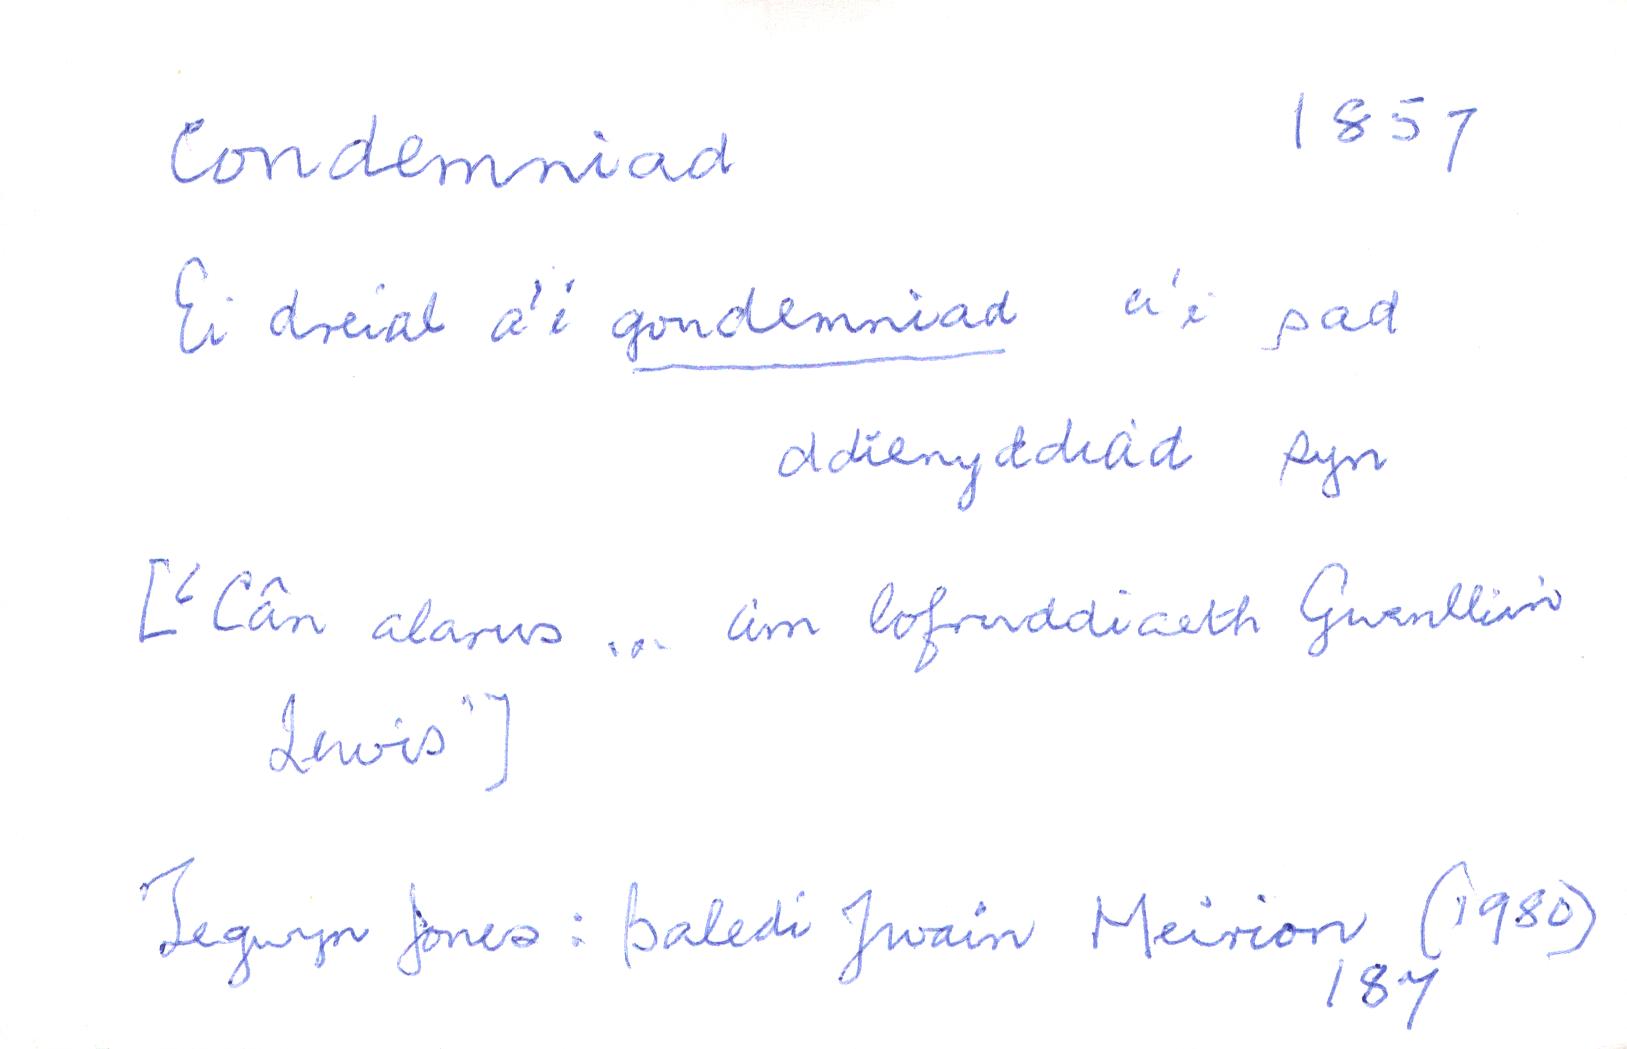 Condemniad 1857
Ei dreial a'i gondemniad a'i sad
ddienyddiad syn
["Cân alarus ... am lofruddiaeth Gwenllian
Lewis"]
Tegwyn Jones: Baledi Ywain Meirion (1980)
187